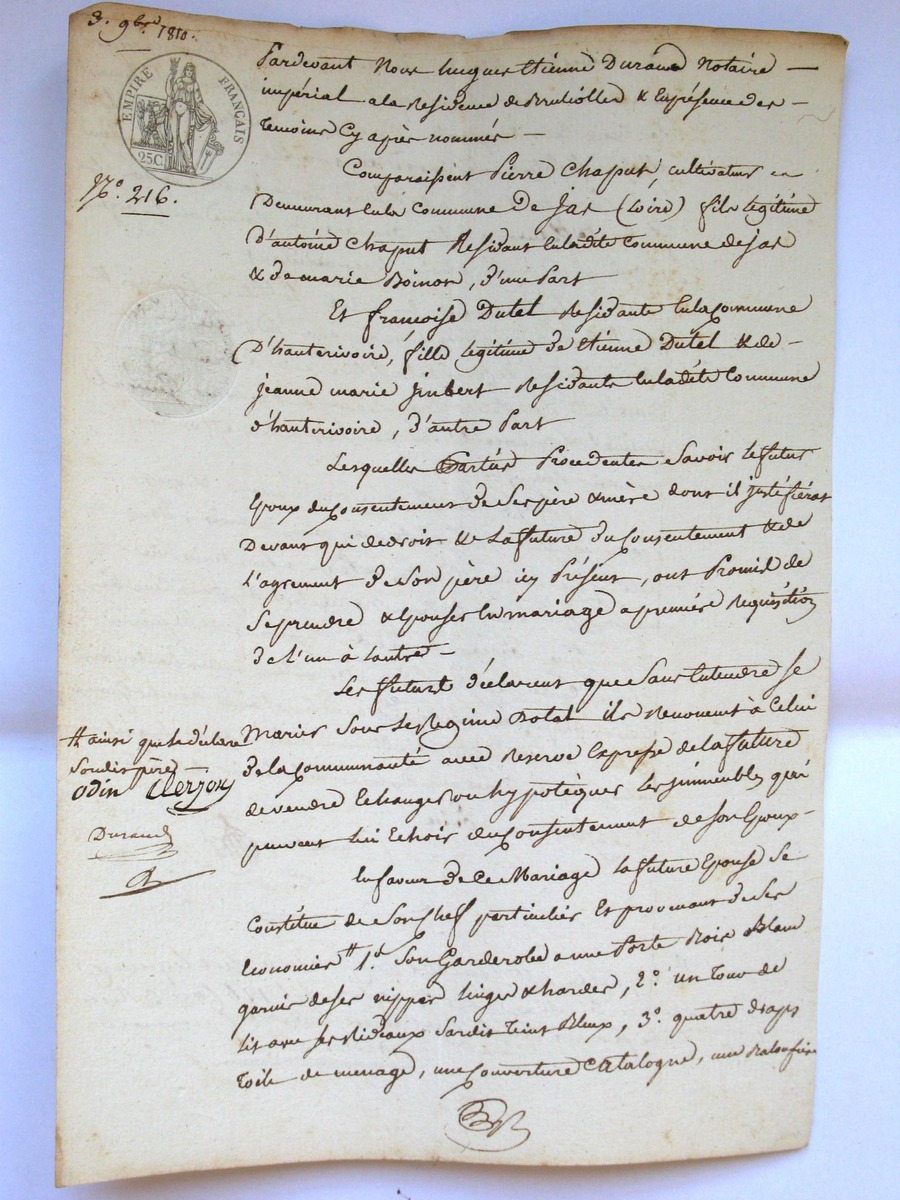 3. 9bre 1810.
EMPIRE FRANÇAIS
25C.
N.° 216.
Pardevant Nous hugues Etienne Durand Notaire
impérial ala Residence de Brulliolles & Enprésence des
temoins Cy après nommés
Comparaissent Pierre Chaput, cultivateur en
Demeurant enla Commune De Jas (Loire) fils legitime
D'antoine Chaput Residant enladite Commune de jas
& de marie Boinon, d'une Part
Et francoise Dutel Residante enlaCommune
D'hauterivoire, fille legitime de Etienne Dutel & de
jeanne marie jmbert Residants enladite Commune
d'hauterivoire, d'autre Part
Lesquelles Parties Procedentes Savoir le futur
Epoux duConsentement de Ses père & mère dont il justifiera
Devant qui de droit & La future du Consentement & de
L'agrement de Son père icy Présent, ont Promis de
Se prendre & Epouser En mariage a première Requisition
de l'un à lautre
Les futurs déclarent que Sans Entendre Se
Marier Sous Le Regime Dotal ils Renoncent à Celui
de la Communauté avec Reserve Expresse de la future
de vendre Echanger ou hypotèquer les jmmeubles qui
peuvent lui Echoir du Consentement de Son Epoux
En faveur de Ce Mariage La future Epouse Se
Constitue de Son Chef particulier Et provenant de Ses
Economies # 1.° Son Garderobe a une Porte Bois Blanc
garnie de ses nippes linges & hardes, 2.° un Tour de
lit avec Ses Rideaux Sardit Teint Bleux, 3.° quatre draps
toile de menage, une Couverture Catalogne, une
# ainsi que le déclare
Sondit père
Odin Clerjon
Durand